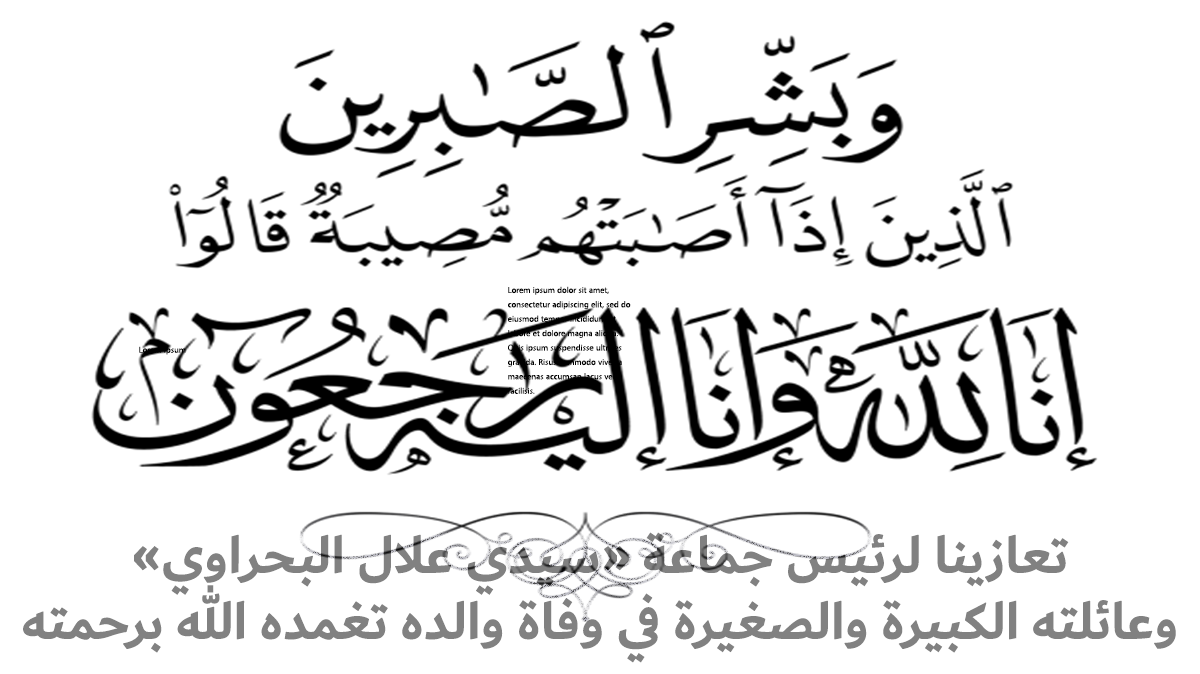 وَبَشِّرِ ٱلصَّـٰبِرِينَ
ٱلَّذِينَ إِذَآ أَصَـٰبَتْهُم مُّصِيبَةٌ قَالُوٓا۟
إنا لله وإنا إليه راجعون
Lorem ipsum dolor sit amet,
consectetur adipiscing elit, sed do
eiusmod tempor incididunt
labore et dolore magna aliqua.
Quis ipsum suspendisse ultrices
gravida. Risus commodo viverra
maecenas accumsan lacus vel
facilisis.
Lorem ipsum
تعازينا لرئيس جماعة «سيدي علال البحراوي»
وعائلته الكبيرة والصغيرة في وفاة والده تغمده الله برحمته